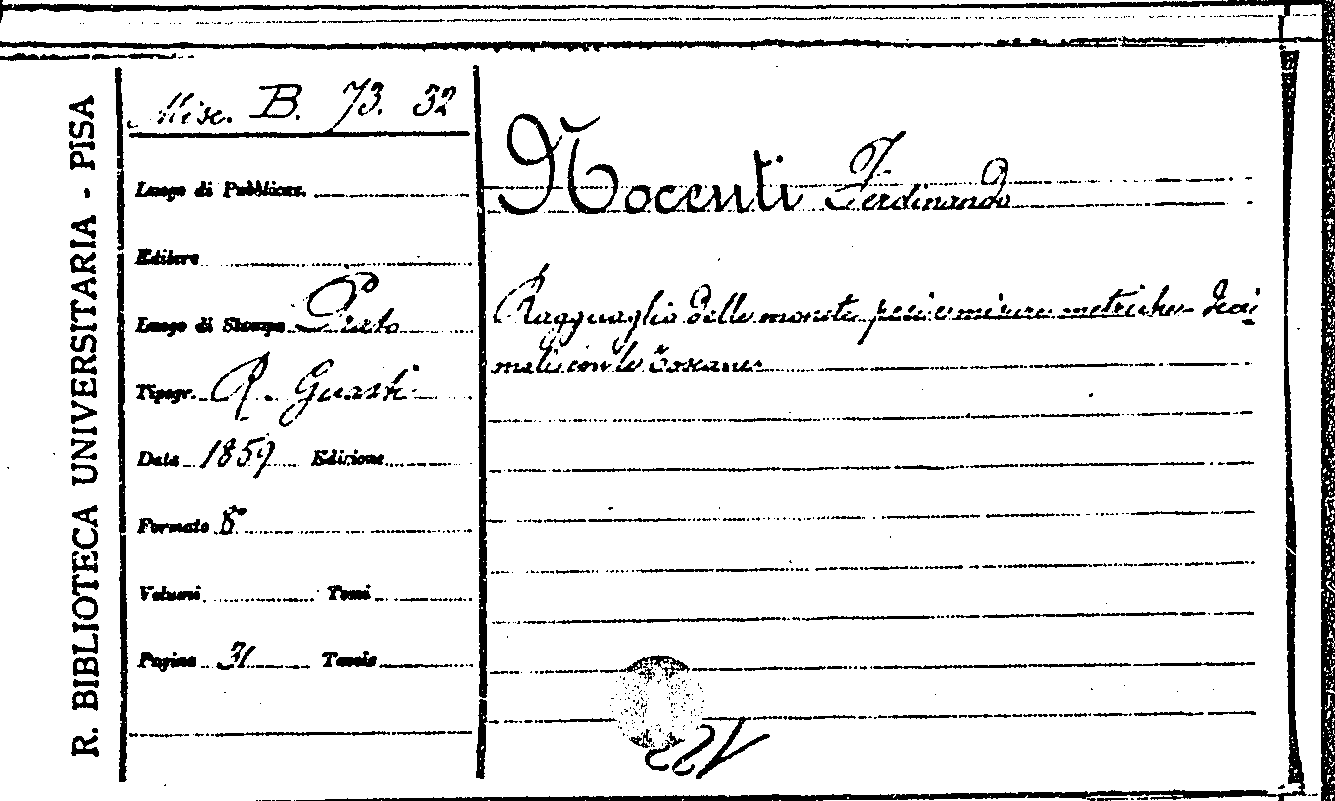 R. BIBLIOTECA UNIVERSITARIA - PISA
Misc. B. 73. 32
Luogo di Pubblicaz.
Editore
Luogo di Stampa Prato
Tipogr. R. Guasti
Data 1859 Edizione
Formato 8°
Volumi Tomi
Pagine 31 Tavole
Nocenti Ferdinando
Ragguaglio delle monete pesi e misure metriche - deci
mali con le Toscane